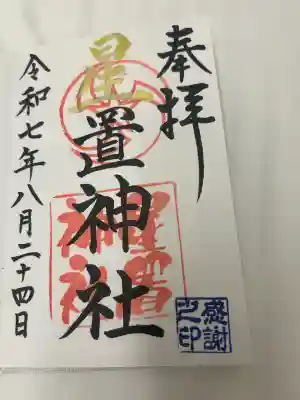 奉拝
星置神社
星置神社
感謝之印
令和七年八月二十四日